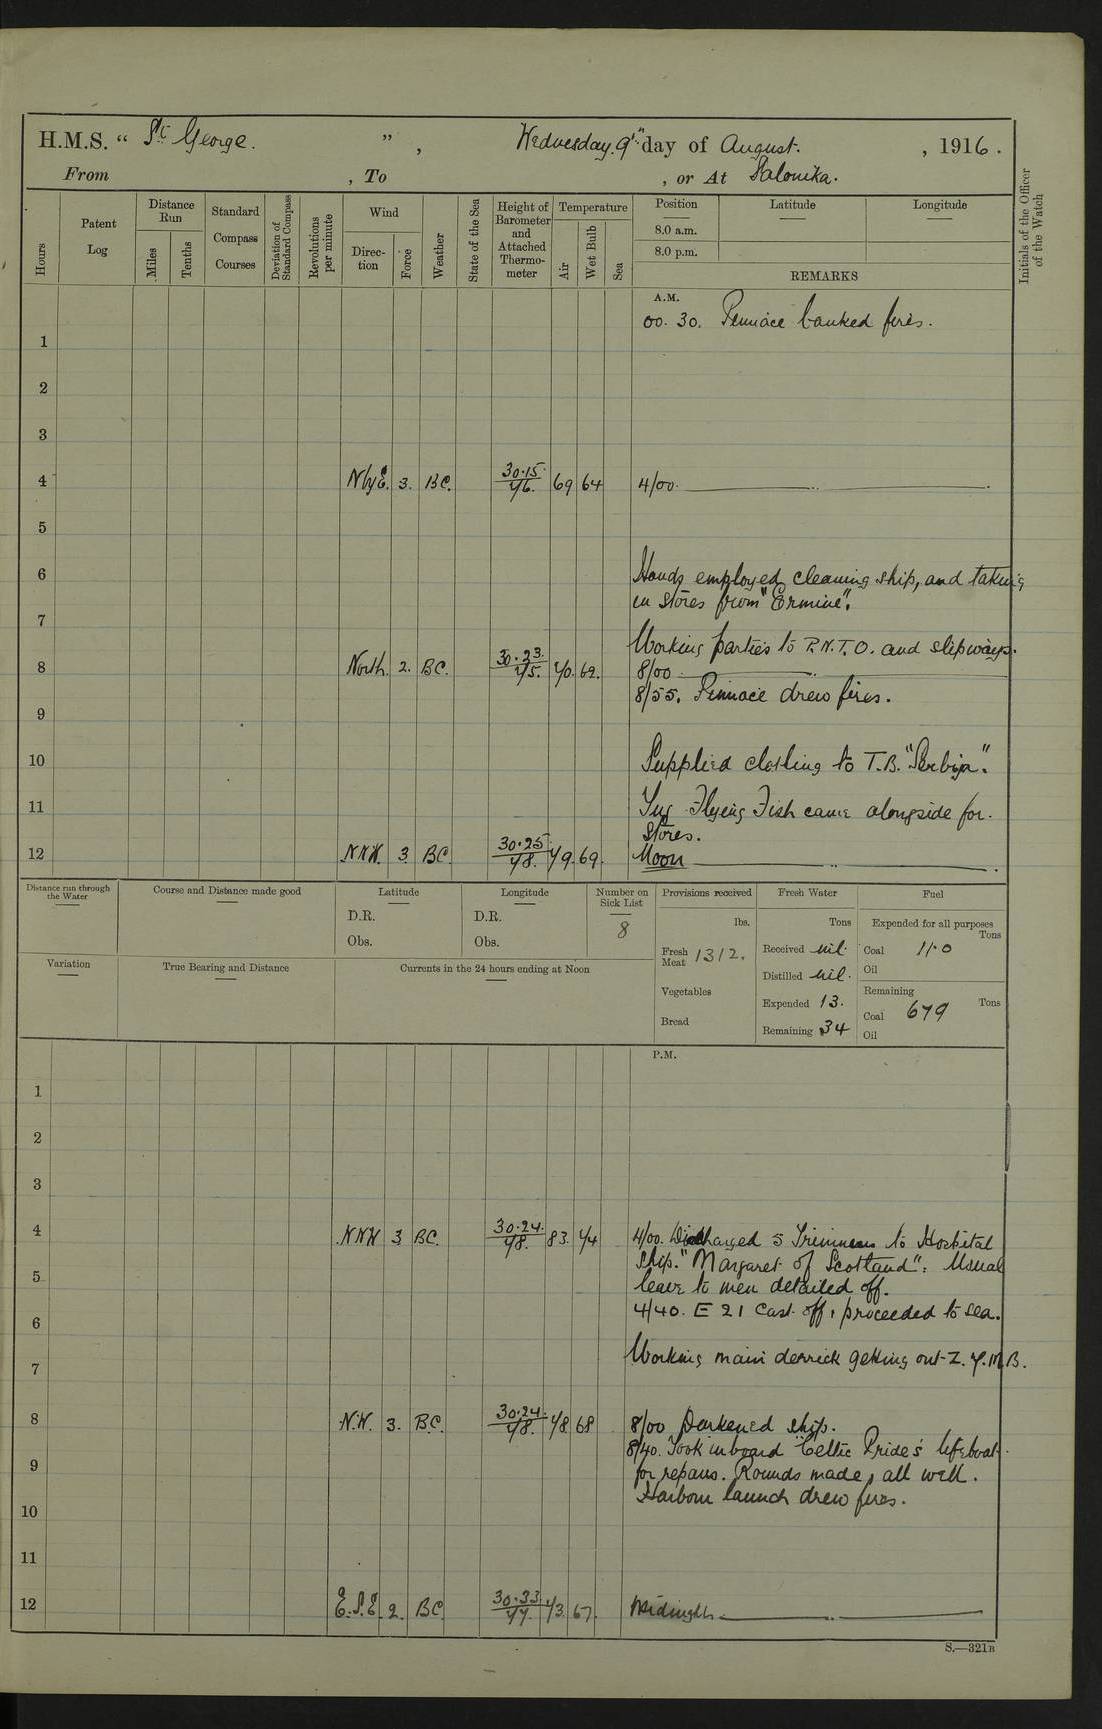 H.M.S. “ St George. ” , Wednesday. 9th day of August. , 1916.
From , To , or At Salonika.
Hours
Patent Log
Distance Run
Miles
Tenths
Standard Compass Courses
Deviation of Standard Compass
Revolutions per minute
Wind
Direction
Force
Weather
State of the Sea
Height of Barometer and Attached Thermometer
Temperature
Air
Wet Bulb
Sea
Position Latitude Longitude
8.0 a.m.
8.0 p.m.
REMARKS
Initials of the Officer of the Watch
A.M.
00.30. Pinnace banked fires.
1
2
3
4 NbyE. 3. BC. 30.15 76. 69 64 4/00.
5
6 Hands employed cleaning ship, and taking
in stores from "Ermine".
7
Working parties to P.N.T.O. and slipways.
8 North. 2. BC. 30.23. 75. 70. 62. 8/00
8/55. Pinnace drew fires.
9
10 Supplied clothing to T.B. "Serbija".
11 Tug Flying Fish came alongside for
stores.
12 NNW. 3. BC 30.25 78. 79. 69. Noon
Distance run through the Water
Course and Distance made good
Latitude
D.R.
Obs.
Longitude
D.R.
Obs.
Number on Sick List
8
Provisions received
lbs.
Fresh Meat 1312.
Vegetables
Bread
Fresh Water
Tons
Received nil.
Distilled nil.
Expended 13.
Remaining 34
Fuel
Expended for all purposes
Tons
Coal 11.0
Oil
Remaining
Coal 679 Tons
Oil
Variation
True Bearing and Distance
Currents in the 24 hours ending at Noon
P.M.
1
2
3
4 NNW 3 BC. 30.24. 78. 83. 74 4/00. Discharged 5 to Hospital
ship. "Margaret of Scotland". Usual
5 leave to men detailed off.
4/40. E 21 cast off, proceeded to sea.
6
Working main derrick getting out
7
8 N.W. 3. B.C. 30.24. 78. 78 68 8/00 Darkened ship.
8/40. Took inboard "Celtic Pride's lifeboat
9 for repairs. Rounds made, all well.
Harbour launch drew fires.
10
11
12 E.S.E. 2. BC 30.33 77. 73 67. Midnight.
S.—321B